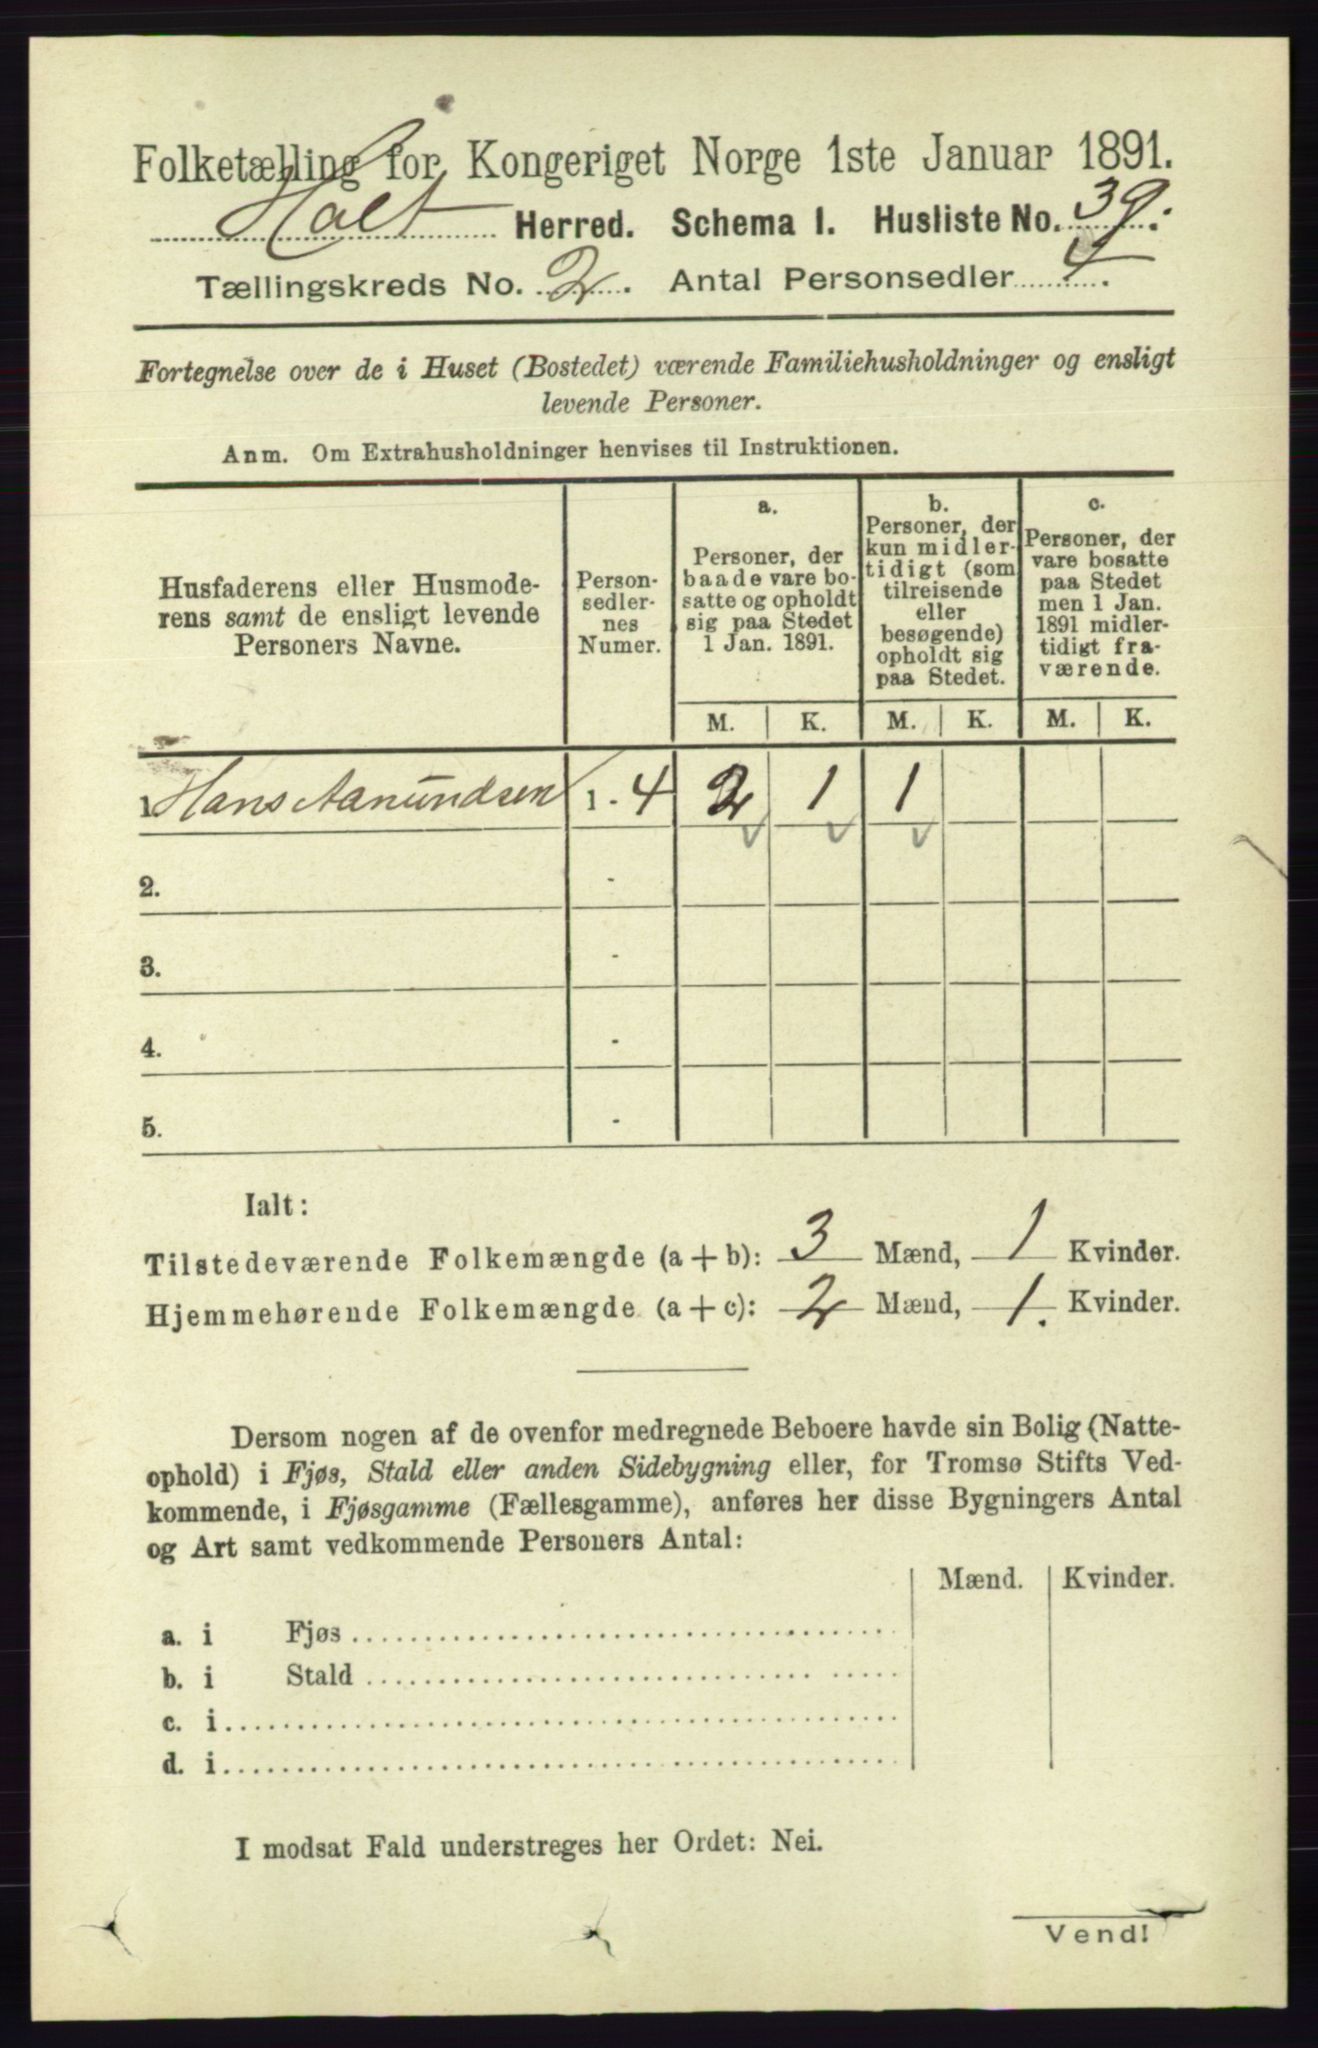 Folketælling for Kongeriget Norge 1ste Januar 1891.
Holt Herred. Schema I. Husliste No. 39.
Tællingskreds No. 2. Antal Personsedler 4.
Fortegnelse over de i Huset (Bostedet) værende Familiehusholdninger og ensligt
levende Personer.
Anm. Om Extrahusholdninger henvises til Instruktionen.
Husfaderens eller Husmode-
rens samt de ensligt levende
Personers Navne.
Person-
sedler-
nes
Numer.
a.
Personer, der
baade vare bo-
satte og opholdt
sig paa Stedet
1 Jan. 1891.
b.
Personer, der
kun midler-
tidigt (som
tilreisende
eller
besøgende)
opholdt sig
paa Stedet.
c.
Personer, der
vare bosatte
paa Stedet
men 1 Jan.
1891 midler-
tidigt fra-
værende.
M. K. M. K. M. K.
1. Hans Aanundsen 1 - 4 2 1 1
2. -
3. -
4. -
5. -
Ialt:
Tilstedeværende Folkemængde (a + b): 3 Mænd, 1 Kvinder.
Hjemmehørende Folkemængde (a + c): 2 Mænd, 1. Kvinder.
Dersom nogen af de ovenfor medregnede Beboere havde sin Bolig (Natte-
ophold) i Fjøs, Stald eller anden Sidebygning eller, for Tromsø Stifts Ved-
kommende, i Fjøsgamme (Fællesgamme), anføres her disse Bygningers Antal
og Art samt vedkommende Personers Antal:
Mænd. Kvinder.
a. i Fjøs
b. i Stald
c. i
d. i
I modsat Fald understreges her Ordet: Nei.
Vend!